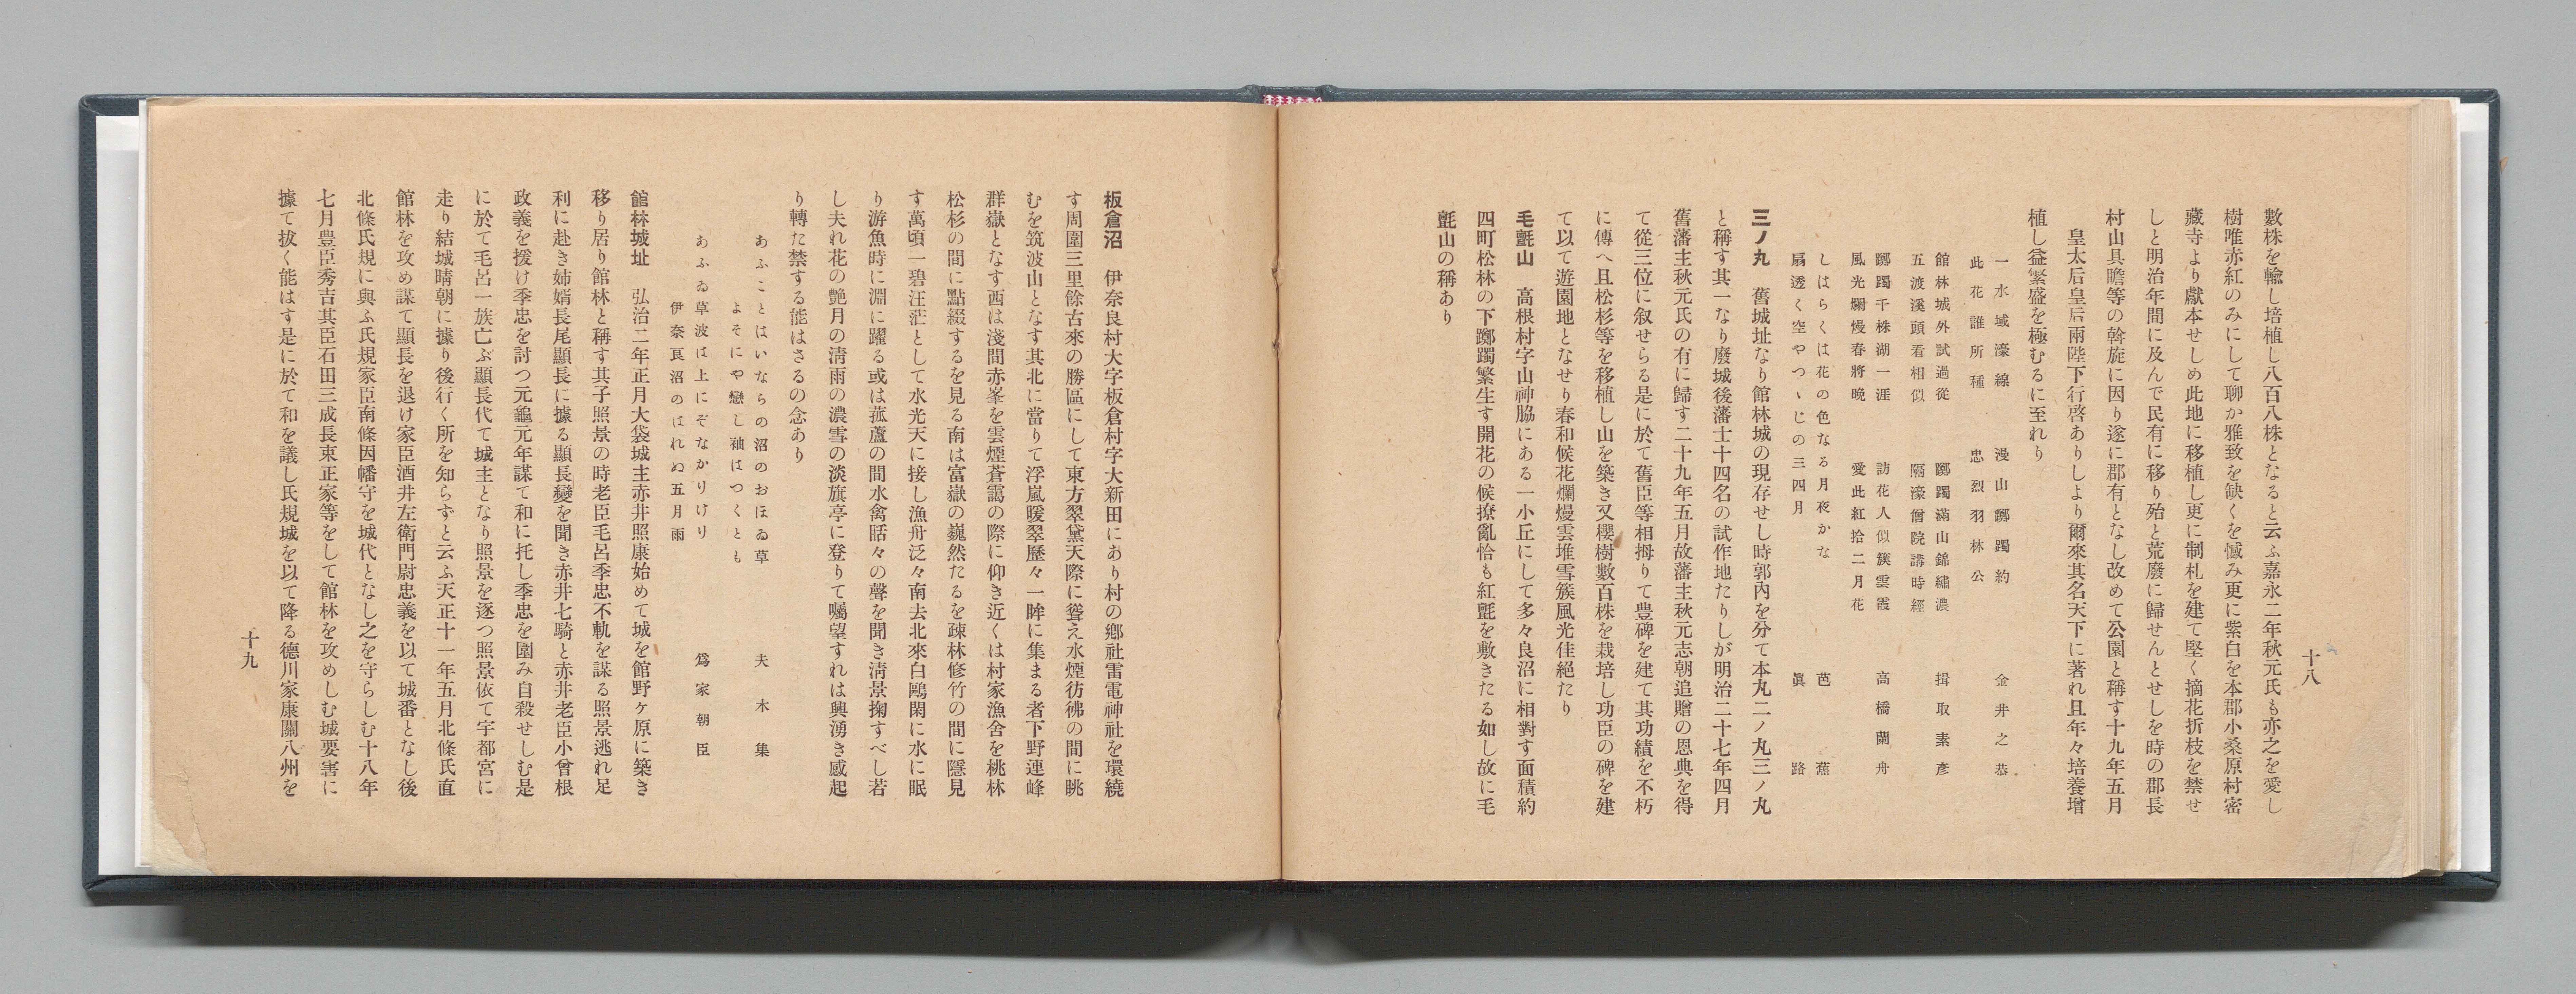 十八
數株を輸し培植し八百八株となると云ふ嘉永二年秋元氏も亦之を愛し
樹唯亦紅のみにして聊か雅致を缺くを慽み更に紫白を本郡小桑原村密
藏寺より獻本せしめ此地に移植し更に制札を建て堅く摘花折枝を禁せ
しと明治年間に及んで民有に移り殆と荒廢に歸せんとせしを時の郡長
村山具瞻等の斡旋に因り遂に郡有となし改めて公園と稱す十九年五月
皇太后皇后兩陛下行啓ありしより爾來其名天下に著れ且年々培養增
植し益繁盛を極むるに至れり
一水域濠線　漫山躑躅約　金井之恭
此花誰所種　忠烈羽林公
館林城外試過從　躑躅滿山錦繡濃　揖取素彥
五渡溪頭看相似　隔濠僧院講時經
躑躅千株湖一涯　訪花人似簇雲霞　高橋蘭舟
風光爛熳春將晚　愛此紅拾二月花
しはらくは花の色なる月夜かな　芭蕉
扇透く空やつゝじの三四月　眞路
三ノ丸　舊城址なり館林城の現存せし時郭內を分て本丸二ノ丸三ノ丸
と稱す其一なり廢城後藩士十四名の試作地たりしが明治二十七年四月
舊藩主秋元氏の有に歸す二十九年五月故藩主秋元志朝追贈の恩典を得
て從三位に叙せらる是に於て舊臣等相拇りて豊碑を建て其功績を不朽
に傳へ且松杉等を移植し山を築き又櫻樹數百株を栽培し功臣の碑を建
て以て遊園地となせり春和候花爛熳雲堆雪簇風光佳絕たり
毛氈山　高根村字山神脇にある一小丘にして多々良沼に相對す面積約
四町松林の下躑躅繁生す開花の候撩亂恰も紅氈を敷きたる如し故に毛
氈山の稱あり
板倉沼　伊奈良村大字板倉村字大新田にあり村の鄕社雷電神社を環繞
す周圍三里餘古來の勝區にして東方翠黛天際に聳え水煙彷彿の間に眺
むを筑波山となす其北に當りて浮嵐暖翠歷々一眸に集まる者下野連峰
群嶽となす西は淺間赤峯を雲煙蒼靄の際に仰き近くは村家漁舍を桃林
松杉の間に點綴するを見る南は富嶽の巍然たるを疎林修竹の間に隱見
す萬頃一碧汪茫として水光天に接し漁舟泛々南去北來白鷗閑に水に眠
り游魚時に淵に躍る或は菰蘆の間水禽聒々の聲を聞き淸景掬すべし若
し夫れ花の艷月の淸雨の濃雪の淡旗亭に登りて囑望すれは興湧き感起
り轉た禁する能はさるの念あり
あふことはいならの沼のおほゐ草　夫木集
よそにや戀し袖はつくとも
あふゐ草波は上にぞなかりけり　爲家朝臣
伊奈良沼のはれぬ五月雨
館林城址　弘治二年正月大袋城主赤井照康始めて城を館野ヶ原に築き
移り居り館林と稱す其子照景の時老臣毛呂季忠不軌を謀る照景逃れ足
利に赴き姉婿長尾顯長に據る顯長變を聞き赤井七騎と赤井老臣小曾根
政義を援け季忠を討つ元龜元年謀て和に托し季忠を圍み自殺せしむ是
に於て毛呂一族亡ぶ顯長代て城主となり照景を逐つ照景依て宇都宮に
走り結城晴朝に據り後行く所を知らずと云ふ天正十一年五月北條氏直
館林を攻め謀て顯長を退け家臣酒井左衛門尉忠義を以て城番となし後
北條氏規に與ふ氏規家臣南條因幡守を城代となし之を守らしむ十八年
七月豊臣秀吉其臣石田三成長束正家等をして館林を攻めしむ城要害に
據て抜く能はす是に於て和を議し氏規城を以て降る德川家康關八州を
十九